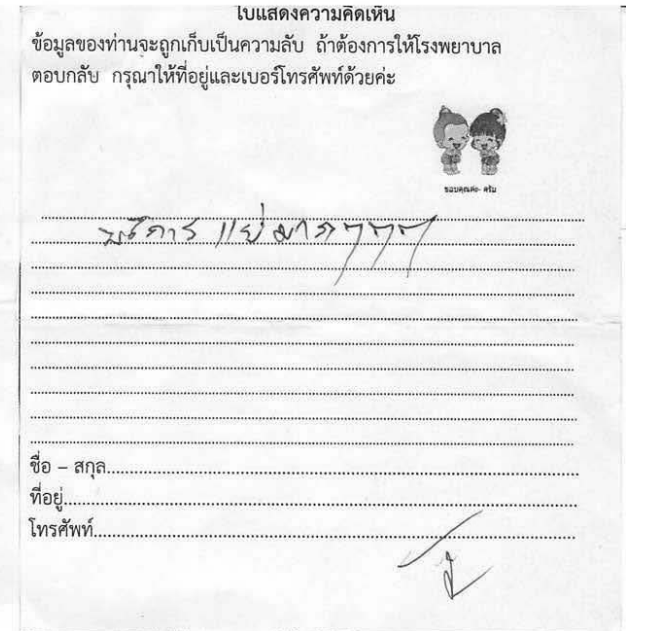 ใบแสดงความคิดเห็น
ข้อมูลของท่านจะถูกเก็บเป็นความลับ ถ้าต้องการให้โรงพยาบาล
ตอบกลับ กรุณาให้ที่อยู่และเบอร์โทรศัพท์ด้วยค่ะ
ขอบคุณค่ะ- ครับ
บริการ แย่ มากๆๆๆ
ชื่อ – สกุล
ที่อยู่
โทรศัพท์